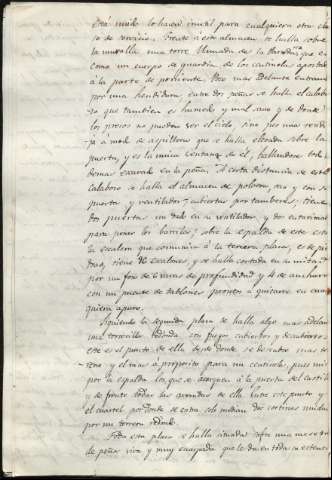 Está mudo lo hacen inutil para cualquiera otra cla
se de servicio. Frente á este almacen se halla sobre
la muralla una torre llamada de la que es
como un cuerpo de guardia de los centinelas apostado
á la parte de poniente. Dos mas adelante entrando
por una hendidura entre dos peñas se halla el calabo
zo que tambien es humedo y mal sano y de donde
los presos no pueden ver el cielo sino por una rendi
ja á modo de aspillera que se halla elevada sobre la
puerta, y es la unica ventana de él, hallandose todo lo
demas excavado en la peña. A corta distancia de este
calabozo se halla el almacen de polvora, con su
puerta y ventilador cubiertos por tambores; tiene
dos puertas un ventilador, y dos entarimados
para poner los barriles; sobre la espalda de este, está
la escalera que comunica á la tercera plaza, es de pie
dra, tiene escalones, y se halla cortada en su mitad
por un foso de 6 varas de profundidad y 4 de anchura
con un puente de tablones prontos á quitarse en cual
quier apuro.
Siguiendo la segunda plaza se halla algo mas adelante
una torrecilla redonda con fuegos cubiertos y descubiertos
este es el punto de ella desde donde se descubre mas ter
reno y el mas á proposito para un centinela, pues mira
por la espalda los que se acerquen á la puerta del castillo
y de frente todas las avenidas de ella. Entre este punto y
el cuartel por donde se entra solo median dos cortinas unidas
por un torreon redondo.
Toda esta plaza se halla situada sobre una meseta
de peña viva y muy escarpada que le da en toda su estension